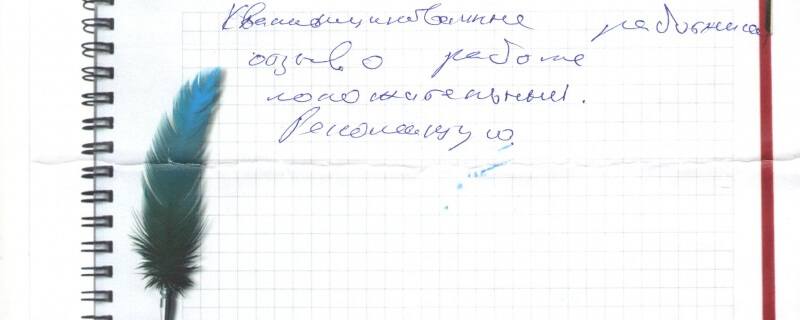 Квалифицированные работники
отзыв о работе
положительный.
Рекомендую.